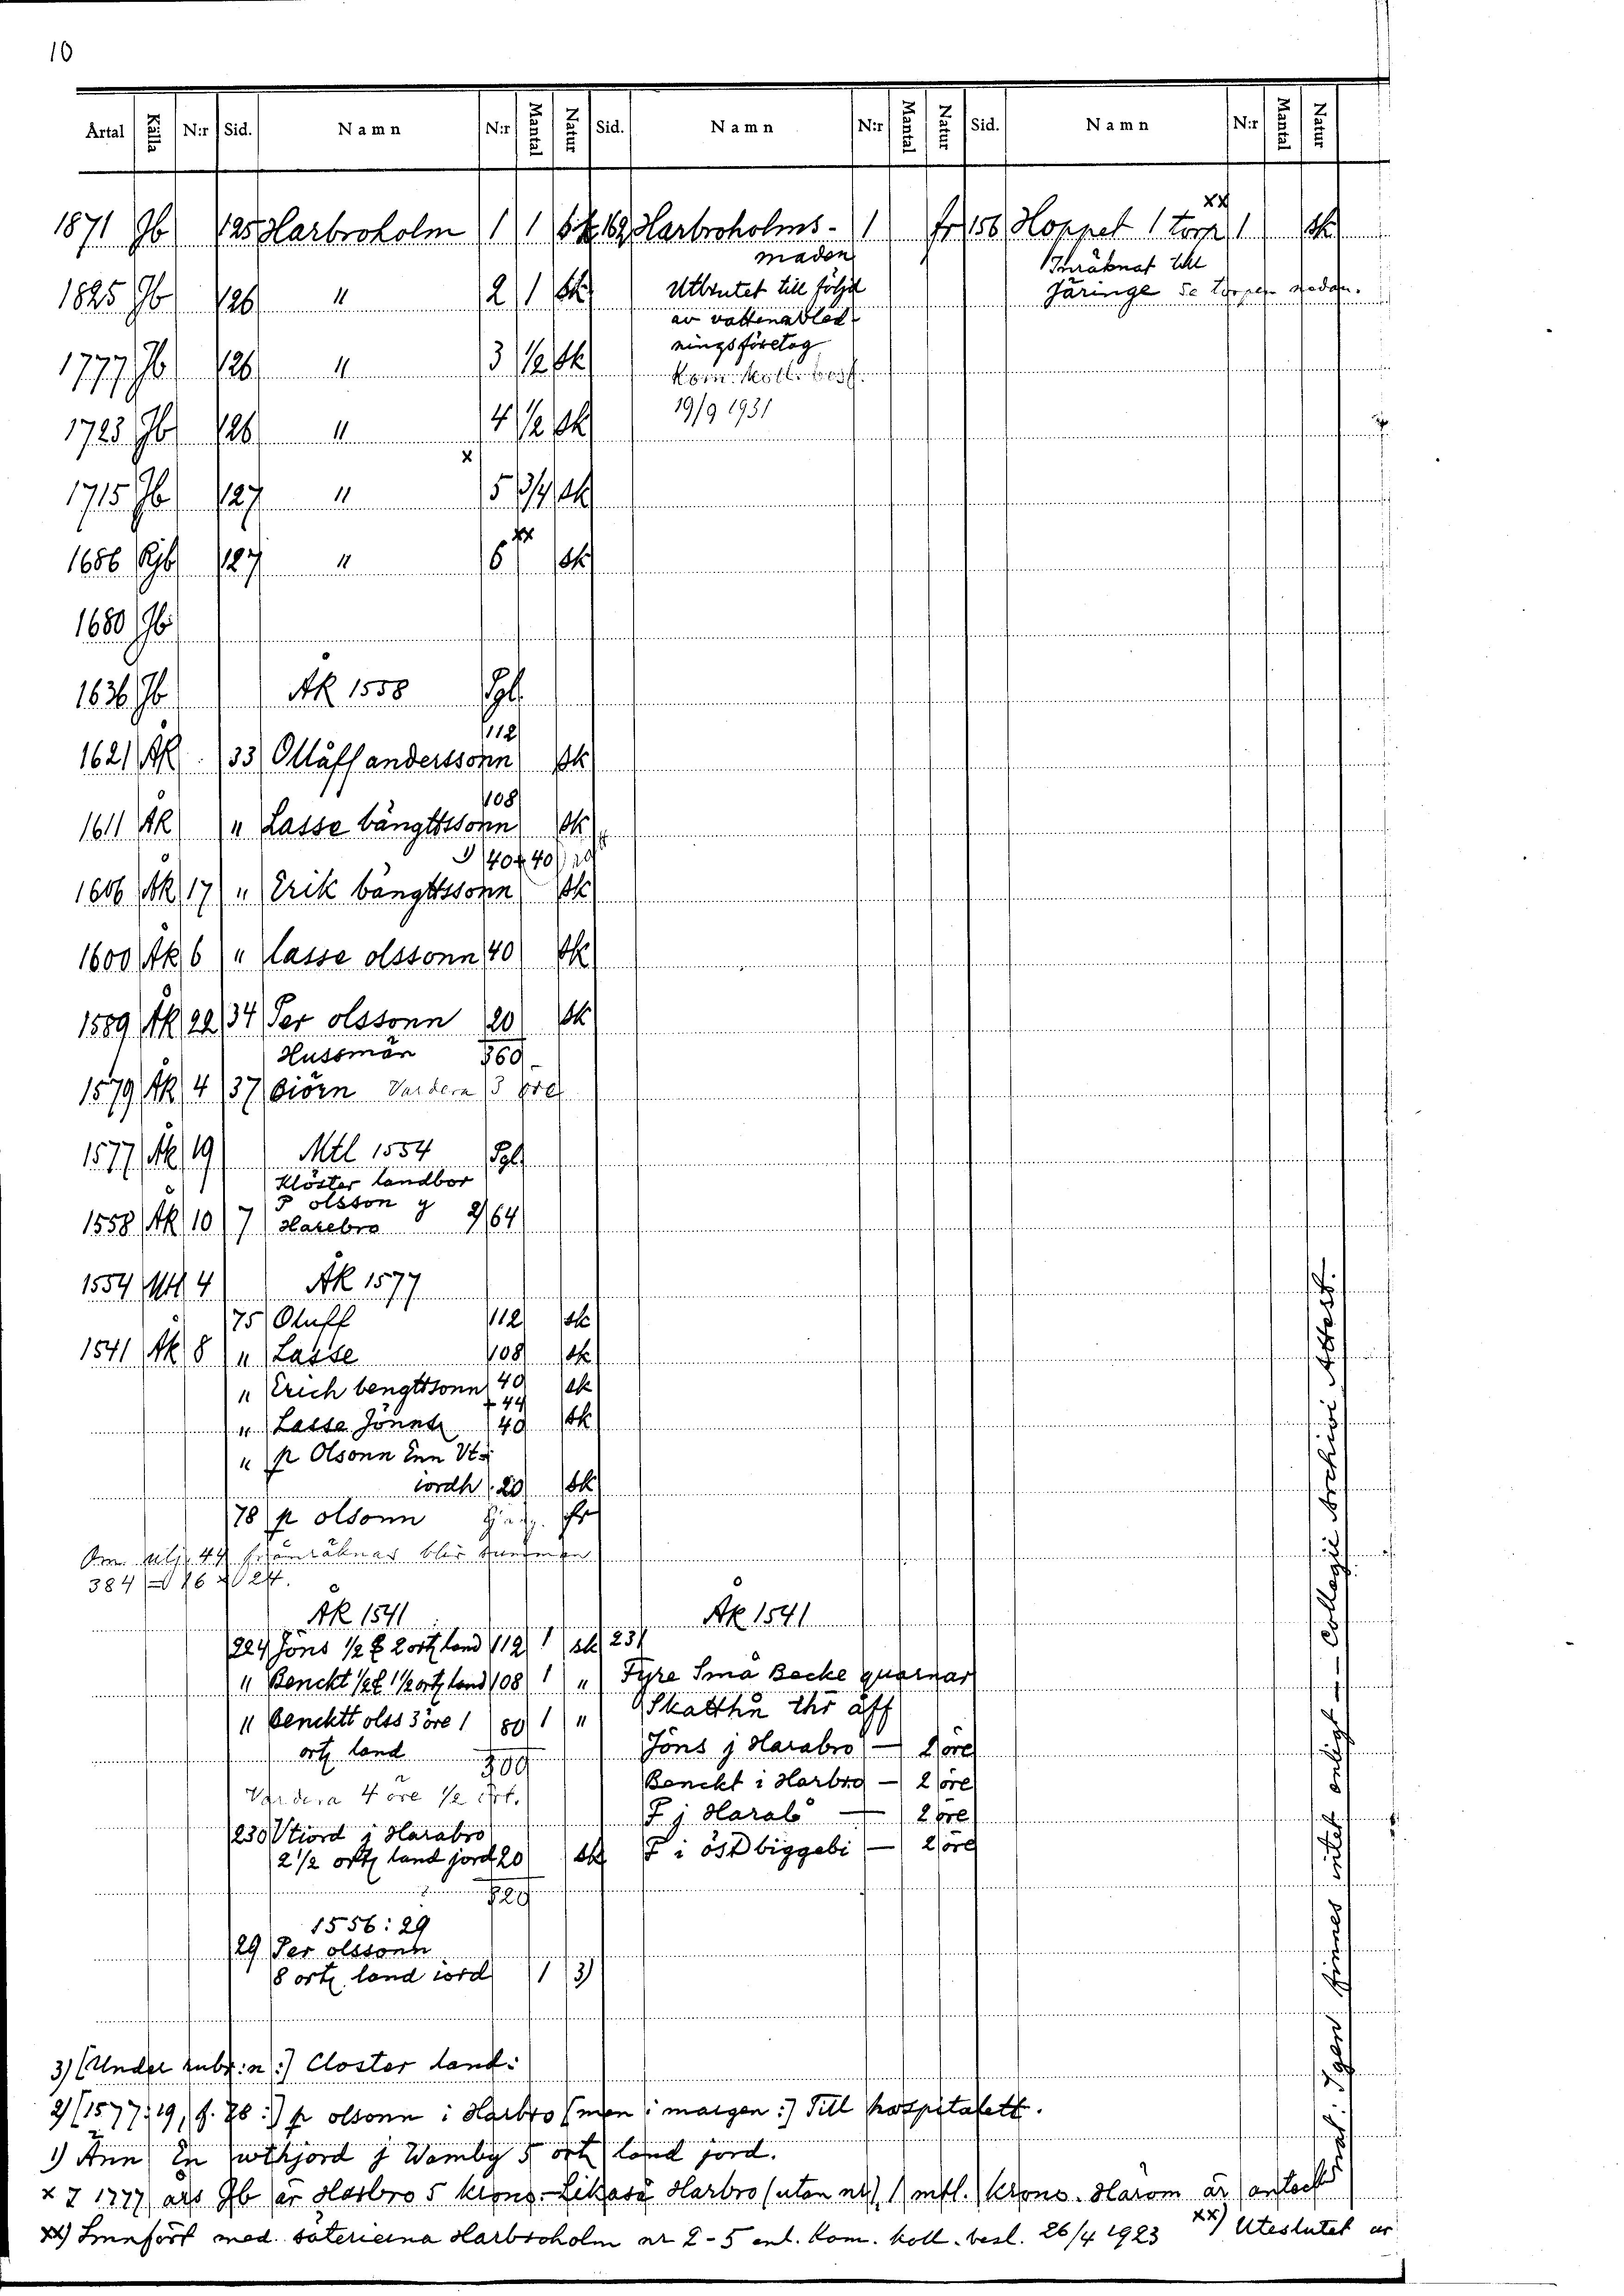 10
Årtal Källa N:r Sid. Namn N:r Mantal Natur Sid. Namn N:r Mantal Natur Sid. Namn N:r Mantal Natur
1871 Jb 125 Harbroholm 1 1 sk 162 Harbroholms- 1 fr 156 Hoppet 1 torp xx 1 sk
maden
Inräknat till
1825 Jb 126 " 2 1 sk Uteslutet till följd Järinge se torpen nedan.
av vattenavled-
1777 Jb 126 " 3 1/2 sk ningsföretag
Kom. Koll. besl.
1723 Jb 126 " 4 1/2 sk 19/9 1931
x
1715 Jb 127 " 5 3/4 sk
xx
1686 Rjb 127 " 6 sk
1680 Jb
1636 Jb ÅK 1558 Pgl
112
1621 ÅK 33 Olluff anderssonn sk
108
1611 ÅK " Lasse bängttssonn sk
1) 40+40
1606 ÅK 17 " Erik bängttssonn sk
1600 ÅK 6 " lasse olssonn 40 sk
1589 ÅK 22 34 Per olssonn 20 sk
Hussmän 360
1579 ÅK 4 37 Biörn Vardera 3 öre
1577 ÅK 19 Mtl 1554 Pgl
Klöster landbor
P olsson y
1558 ÅK 10 7 Harebro 2) 64
1554 Mtl 4 ÅK 1577
75 Oluff 112 sk
1541 ÅK 8 " Lasse 108 sk
" Erich bengttsonn 40 sk
+ 44
" Lasse Jönns 40 sk
" p Olsonn Enn Vt
iordh 20 sk
78 p olsonn fr
Om utj. 44 frånräknas blir summan
384 = 16 x 24.
ÅK 1541 ÅK 1541
224 Jöns 1/2 £ 2 ortz land 112 1 sk 231
" Benckt 1/2 £ 1 1/2 ortz land 108 1 " Fyre Små Becke quarnar
" Bencktt olss 3 öre 1 80 1 " Skatthn thr äff
ortz land 300 Jöns j Harabro — 2 öre
Vardera 4 öre 1/2 ört. Benckt i Harbro — 2 öre
P j Harab — 2 öre
230 Vtiord j Harabro
2 1/2 ortz land jord 20 sk P i östbiggebi — 2 öre
320
1556: 29
29 Per olssonn
8 ortz land iord 1 3)
3) (Under rubr:n:) Closter land:
2) (1577:19, f. 78:) p olsonn i Harbro (men i margen:) Till hospitalett.
1) Änn En wthjord j Wamby 5 ortz land jord.
x I 1777 års Jb är Harbro 5 krono. Likaså Harbro (utan nr), 1 mtl. Krono. Härom är anteck-
xx) Smnfört med säterierna Harbroholm nr 2-5 enl. Kom. Koll. besl. 26/4 1923 xx) Uteslutet ur
igen finnes intet enligt — Collegii Archivi Attest.